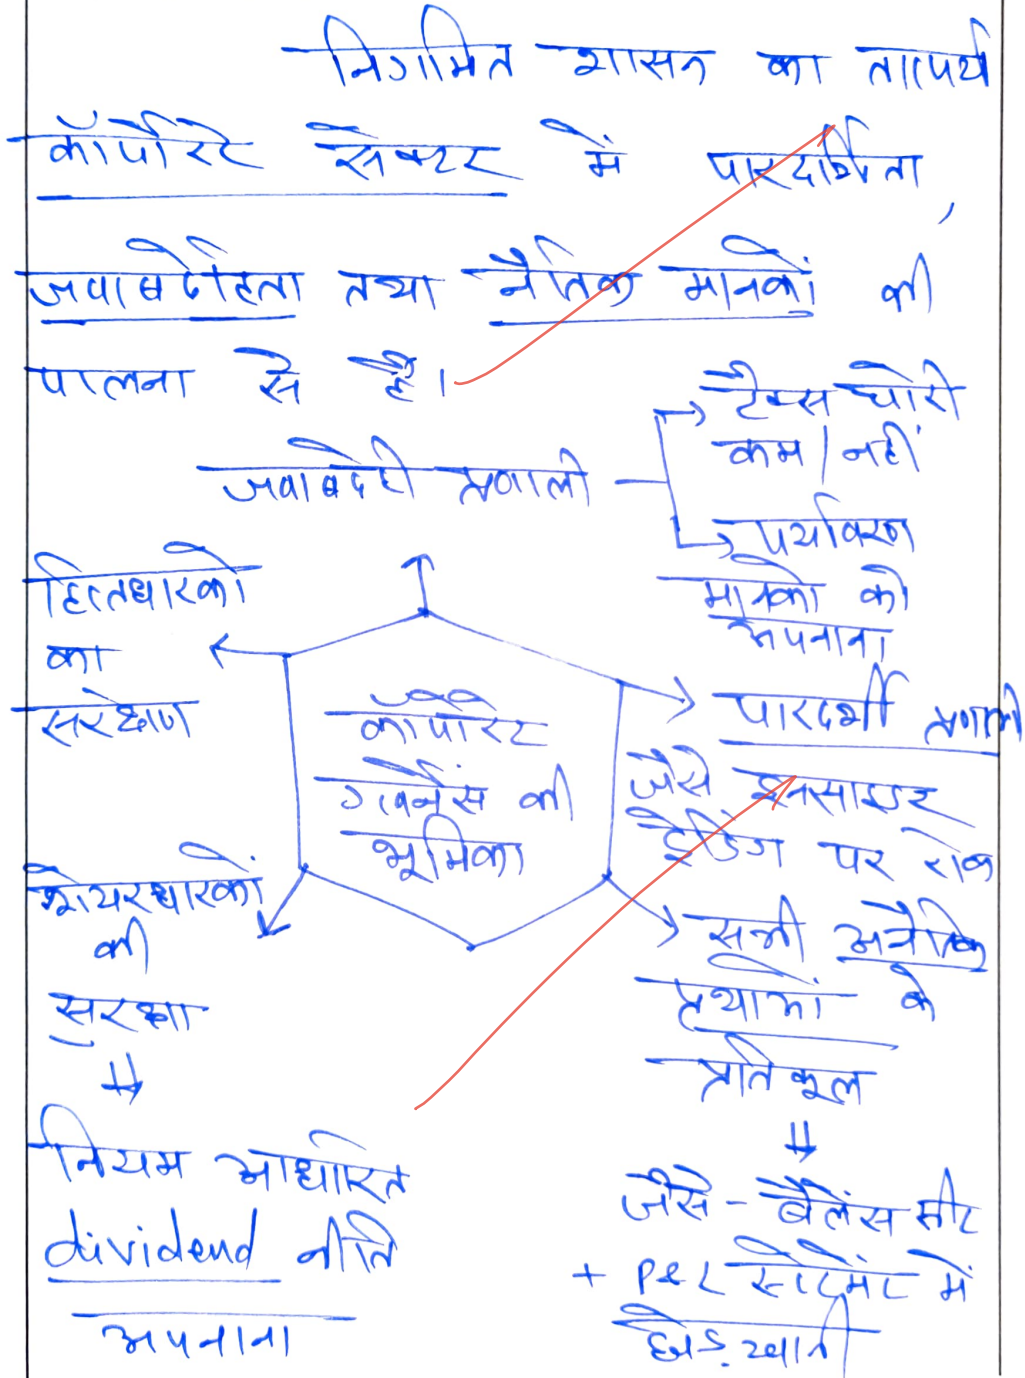 निगमित शासन का तात्पर्य
कॉर्पोरेट सेक्टर में पारदर्शिता,
जवाबदेहिता तथा नैतिक मानकों की
पालना से है।
जवाबदेही प्रणाली
टैक्स चोरी
कम/नहीं
पर्यावरण
मानकों को
अपनाना
हितधारकों
का
संरक्षण
कॉर्पोरेट
गवर्नेंस की
भूमिका
पारदर्शी प्रणाली
जैसे इनसाइडर
ट्रेडिंग पर रोक
शेयरधारकों
की
सुरक्षा
नियम आधारित
dividend नीति
अपनाना
सभी अनैतिक
प्रथाओं के
प्रतिकूल
जैसे - बैलेंस सीट
+ P&L स्टेटमेंट में
छेड़खानी